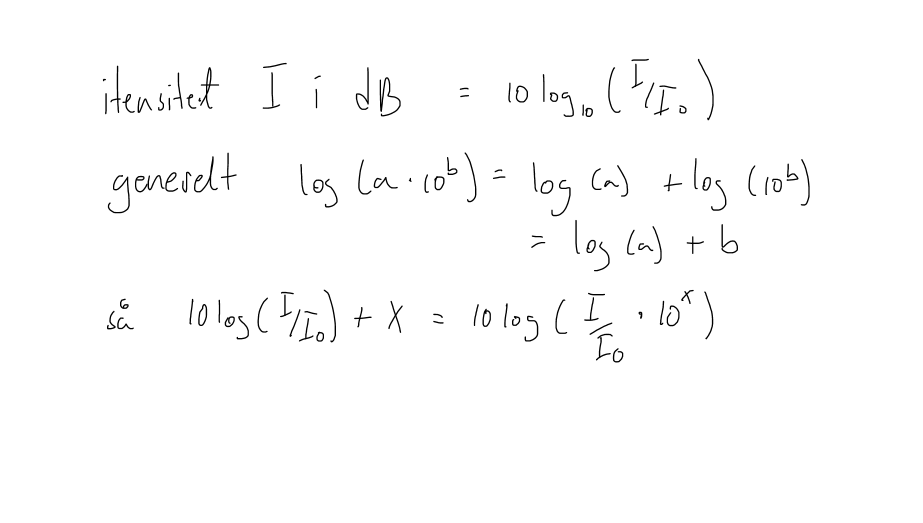 itensitet I i dB = 10 log₁₀ (I/I₀)
generelt log (a · 10ᵇ) = log (a) + log (10ᵇ)
= log (a) + b
så 10 log (I/I₀) + x = 10 log (I/I₀ · 10ˣ)